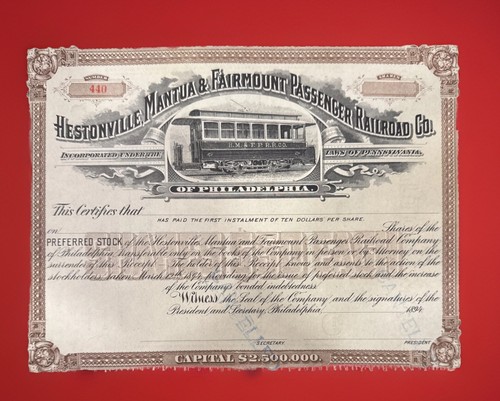 NUMBER
440
SHARES
HESTONVILLE, MANTUA & FAIRMOUNT PASSENGER RAILROAD CO.
H.M.& F.P.R.R.CO.
INCORPORATED UNDER THE LAWS OF PENNSYLVANIA.
OF PHILADELPHIA.
This Certifies that
HAS PAID THE FIRST INSTALMENT OF TEN DOLLARS PER SHARE.
on Shares of the
PREFERRED STOCK of the Hestonville, Mantua and Fairmount Passenger Railroad Company
of Philadelphia transferable only on the books of the Company in person or by Attorney on the
surrender of this Receipt. The holder of this Receipt knows and assents to the action of the
stockholders taken March 22nd 1894, providing for the issue of preferred stock and the increase
of the Company's bonded indebtedness.
Witness the Seal of the Company and the signatures of the
President and Secretary, Philadelphia 1894
SECRETARY
PRESIDENT
CAPITAL $2,500,000.